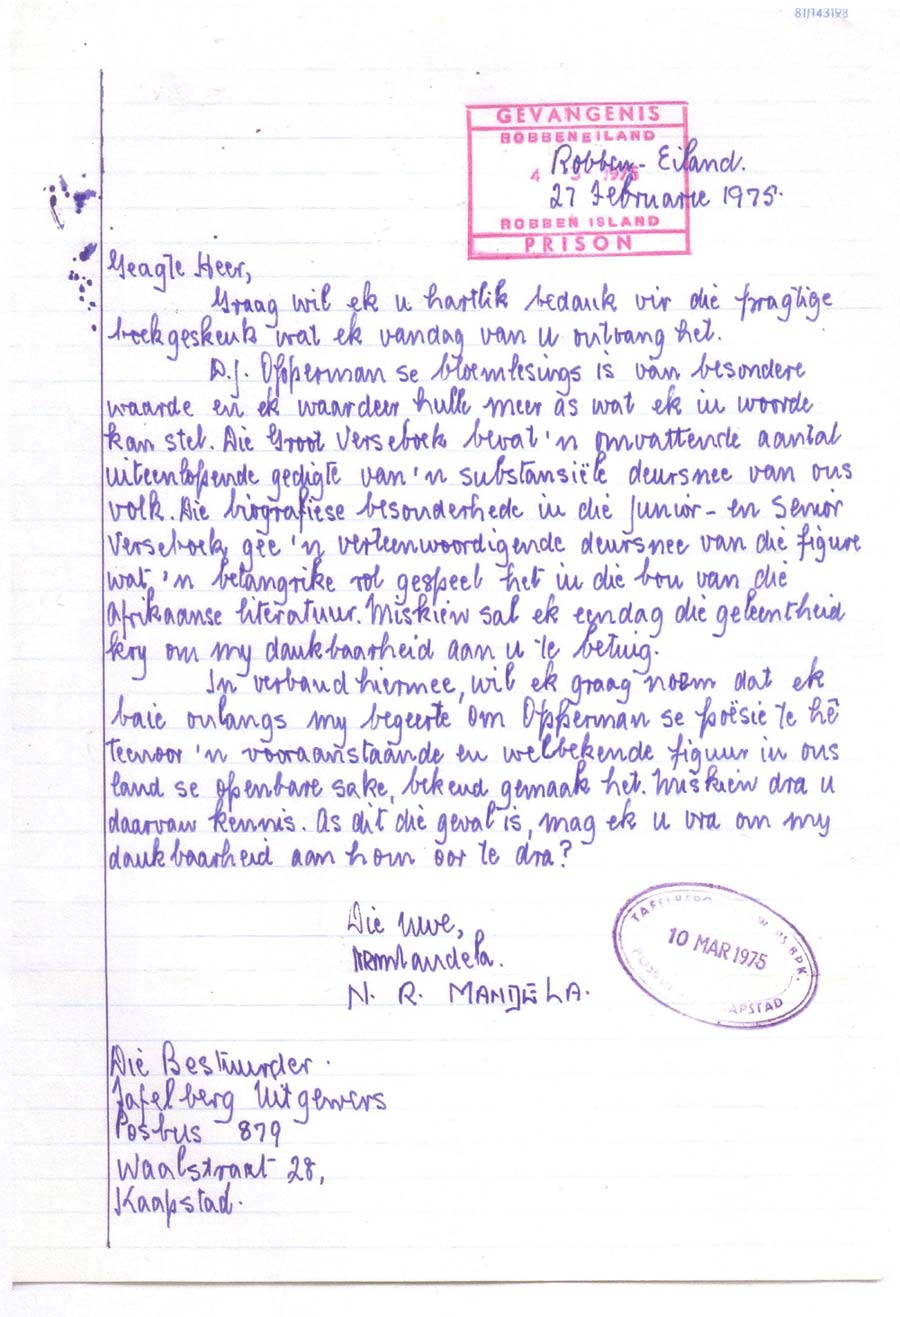 81/143198
GEVANGENIS
ROBBENEILAND
4 3 1975
ROBBEN ISLAND
PRISON
Robben-Eiland.
27 Februarie 1975.
Geagte Heer,
Graag wil ek u hartlik bedank vir die pragtige
boekgeskenk wat ek vandag van u ontvang het.
D.J. Opperman se bloemlesings is van besondere
waarde en ek waardeer hulle meer as wat ek in woorde
kan stel. Die Groot Verseboek bevat 'n omvattende aantal
uiteenlopende gedigte van 'n substansiële deursnee van ons
volk. Die biografiese besonderhede in die Junior- en Senior
Verseboek gee 'n verteenwoordigende deursnee van die figure
wat 'n belangrike rol gespeel het in die bou van die
Afrikaanse literatuur. Miskien sal ek eendag die geleentheid
kry om my dankbaarheid aan u te betuig.
In verband hiermee, wil ek graag noem dat ek
baie onlangs my begeerte om Opperman se poësie te hê
teenoor 'n vooraanstaande en welbekende figuur in ons
land se openbare sake, bekend gemaak het. Miskien dra u
daarvan kennis. As dit die geval is, mag ek u vra om my
dankbaarheid aan hom oor te dra?
Die Uwe,
NRMandela.
N. R. MANDELA.
TAFELBERG BPK.
10 MAR 1975
KAAPSTAD
Die Bestuurder.
Tafelberg Uitgewers
Posbus 879
Waalstraat 28,
Kaapstad.